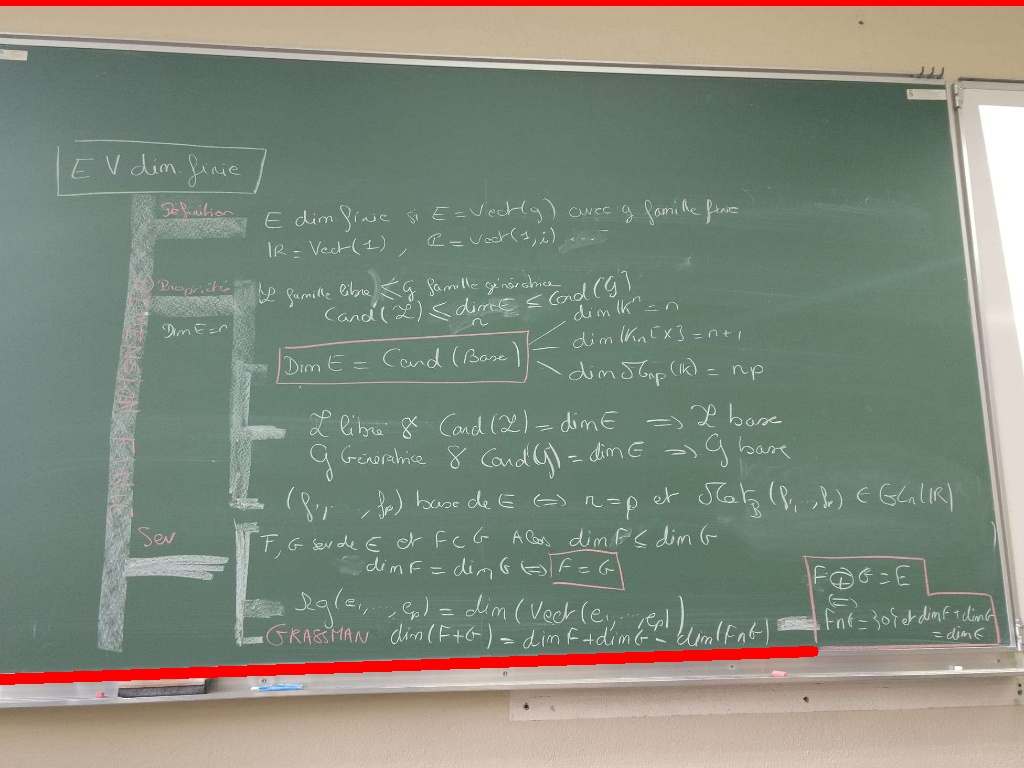 E V dim. finie
Définition
E dim finie si E = Vect(g) avec g famille finie
IR = Vect(1) , ℂ = Vect(1,i) ....
Propriété
ℒ famille libre ≤ G famille génératrice
Card(ℒ) ≤ dim E ≤ Card(G)
n
Dim E = n
Dim E = Card (Base)
dim IKⁿ = n
dim IKn[X] = n+1
dim ℳnp(IK) = np
DIMENSION FINIE
ℒ libre & Card(ℒ) = dim E ⟹ ℒ base
G Génératrice & Card(G) = dim E ⟹ G base
(f1, ..., fp) base de E ⟺ n=p et MatB(f1, .., fp) ∈ GLn(IR)
Sev
F, G sev de E et F⊂G Alors dim F ≤ dim G
dim F = dim G ⟺ F = G
Rg(e1, ..., ep) = dim(Vect(e1, ..., ep))
GRASSMAN dim(F+G) = dim F + dim G - dim(F∩G)
F ⊕ G = E
⟺
F∩G = {0} et dim F + dim G
= dim E